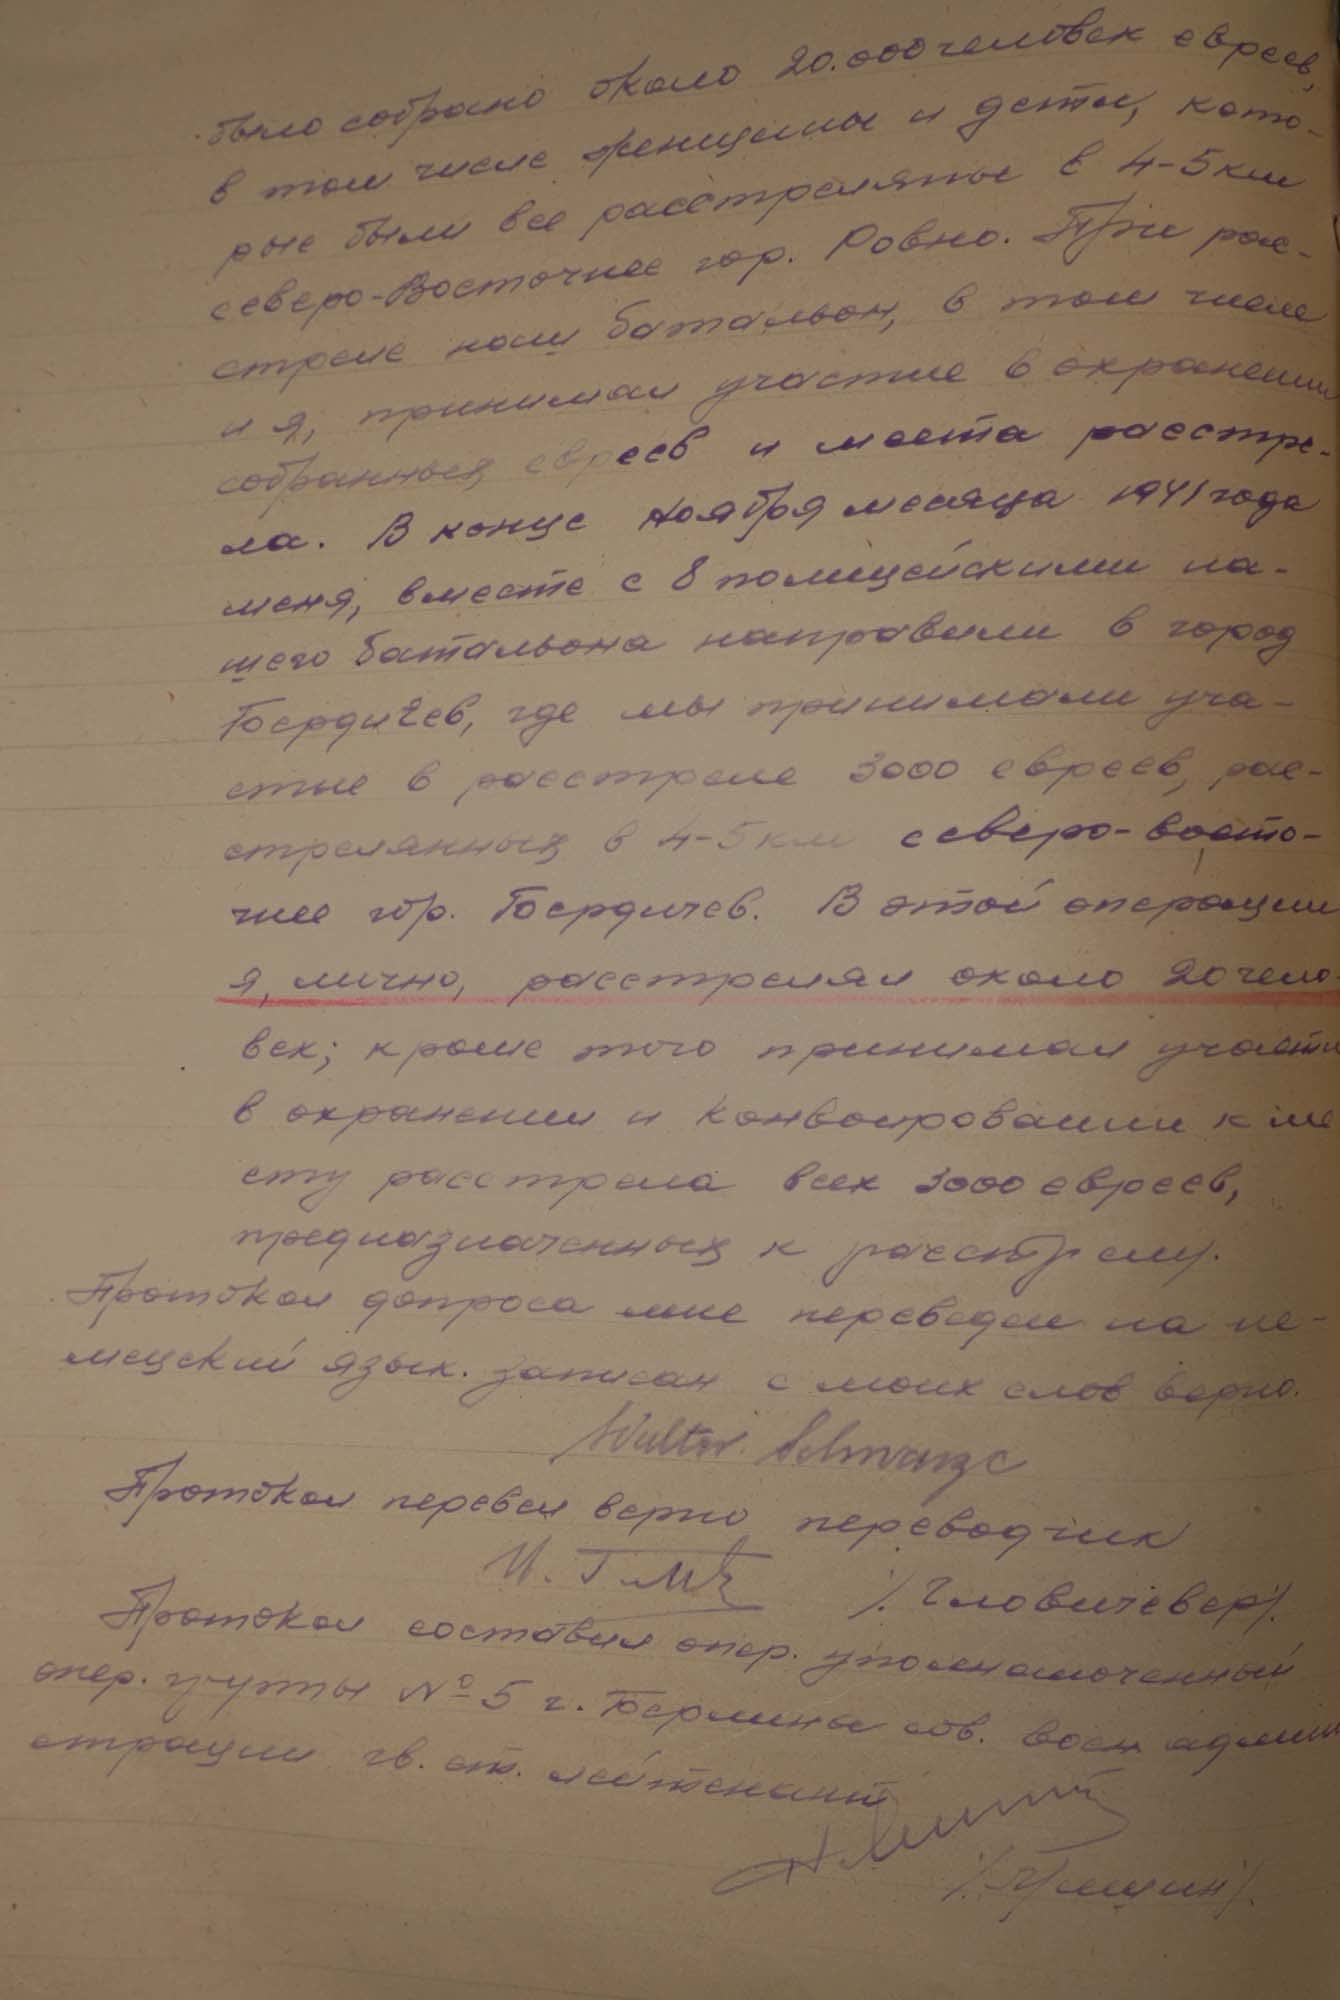 было собрано около 20.000 человек евреев,
в том числе женщины и дети, кото-
рые были все расстреляны в 4-5 км
северо-восточнее гор. Ровно. При рас-
стреле наш батальон, в том числе
и я, принимал участие в охранении
собранных евреев и места расстре-
ла. В конце ноября месяца 1941 года
меня, вместе с 8 полицейскими на-
шего батальона направили в город
Бердичев, где мы принимали уча-
стие в расстреле 3000 евреев, рас-
стрелянных в 4-5 км северо-восто-
чнее гор. Бердичев. В этой операции
я, лично, расстрелял около 20 чело-
век; кроме того принимал участи
в охранении и конвоировании к ме
сту расстрела всех 3000 евреев,
предназначенных к расстрелу.
Протокол допроса мне переведен на не-
мецкий язык. Записан с моих слов верно.
Walter Schwarze
Протокол перевел верно переводчик
/. Гловичевер/.
Протокол составил опер. уполномоченный
опер. группы № 5 г. Берлины сов. воен админи
страции гв. ст. лейтенант